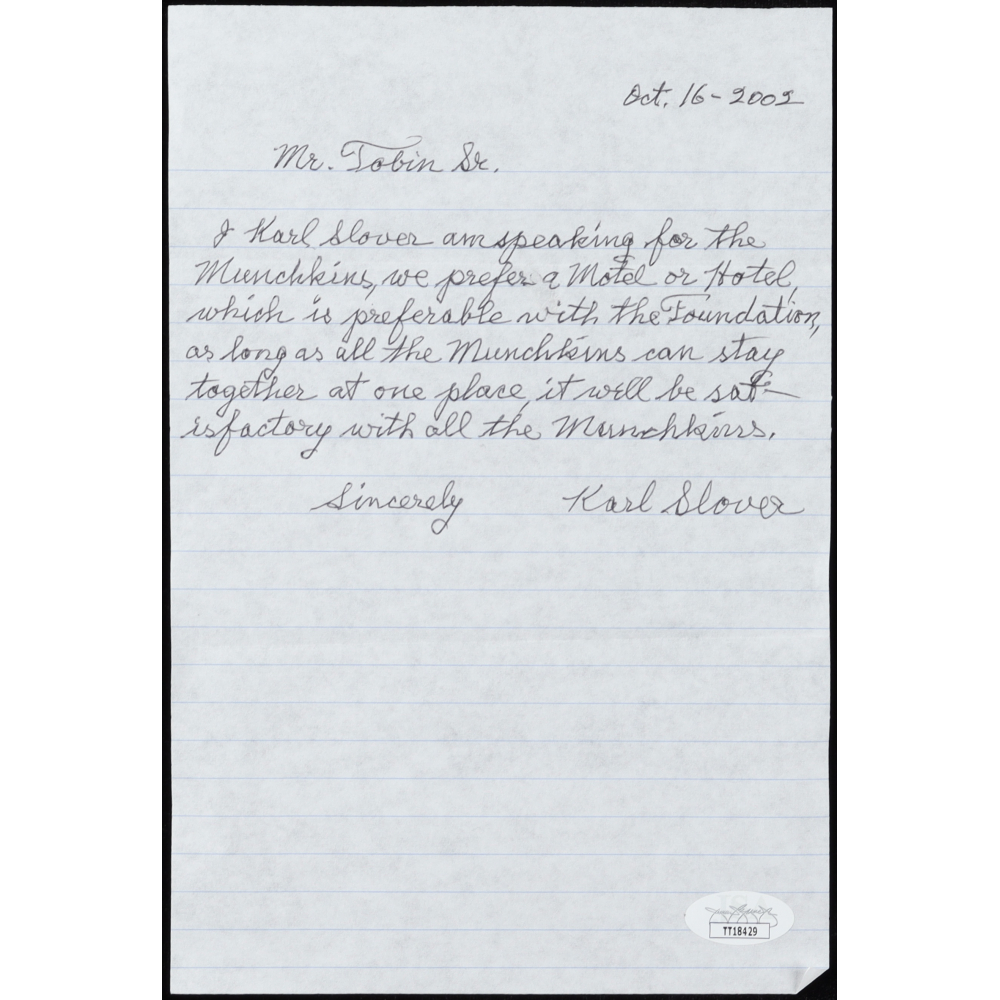 Oct. 16-2002
Mr. Tobin Sr.
I Karl Slover am speaking for the
Munchkins, we prefer a Motel or Hotel,
which is preferable with the Foundation,
as long as all the Munchkins can stay
together at one place, it will be sat-
isfactory with all the Munchkins.
Sincerely Karl Slover
TT18429